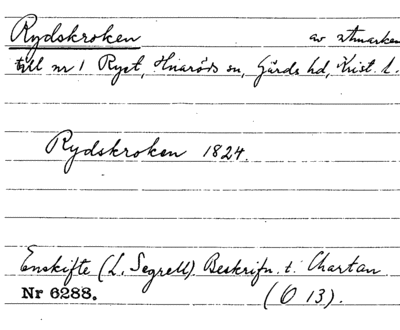 Rydskroken av utmarken
till nr 1 Ryet, Hnaröds sn, Gärds hd, Krist. l.
Rydskroken 1824.
Enskifte (L. Segrell) Beskrifn. t. Chartan
Nr 6288. (O 13).